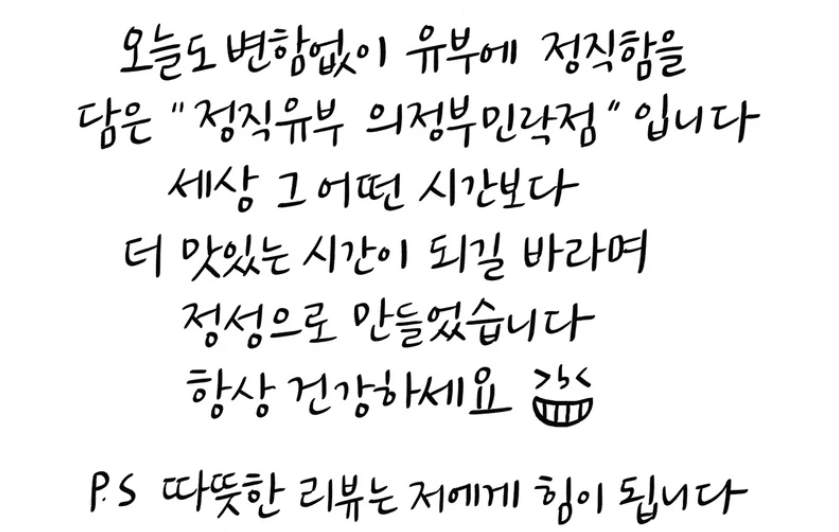 오늘도 변함없이 유부에 정직함을
담은 "정직유부 의정부민락점" 입니다
세상 그 어떤 시간보다
더 맛있는 시간이 되길 바라며
정성으로 만들었습니다
항상 건강하세요
P.S 따뜻한 리뷰는 저에게 힘이 됩니다